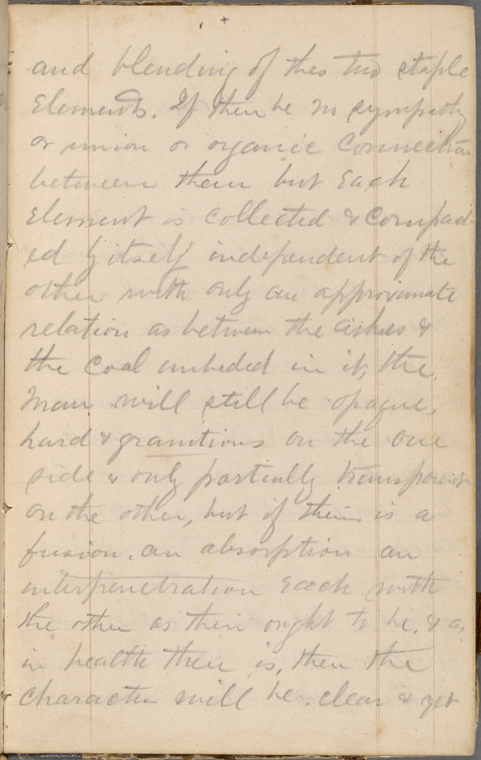 and blending of thes two staple
Elements. If then be no sympathy
or union or organic Connection
between them but Each
Element is collected & compact-
ed by itself independent of the
other with only an approximate
relation as between the ashes &
the Coal imbeded in it, the
man will still be opaque,
hard & granitious on the one
side & only partially transparent
on the other, but if there is a
fusion, an absorption an
interpenetration Each with
the other as their ought to be, & as
in health there is, then the
character will be clear & yet